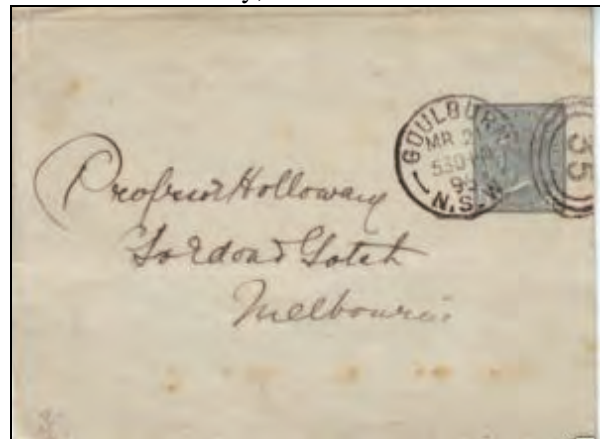 GOULBURN
MR 2
530PM
9
N.S.W
35
Professor Holloway
Gordon & Gotch
Melbourne